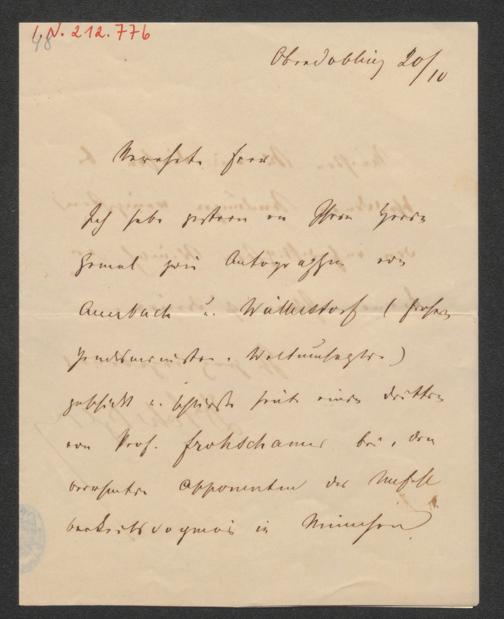 I.N. 212.776
48
Oberdöbling 20/10
Verehrte Frau
Ich habe gestern an Ihren Herrn
Gemal zwei Autographen von
Auerbach u. Wüllerstorf (früher
Handelsminister u. Weltumsegler)
geschickt u. schließe heute einen dritten
von Prof. Frohschamer bei, den
berühmten Opponenten des Unfehl
barkeitsdogmas in München